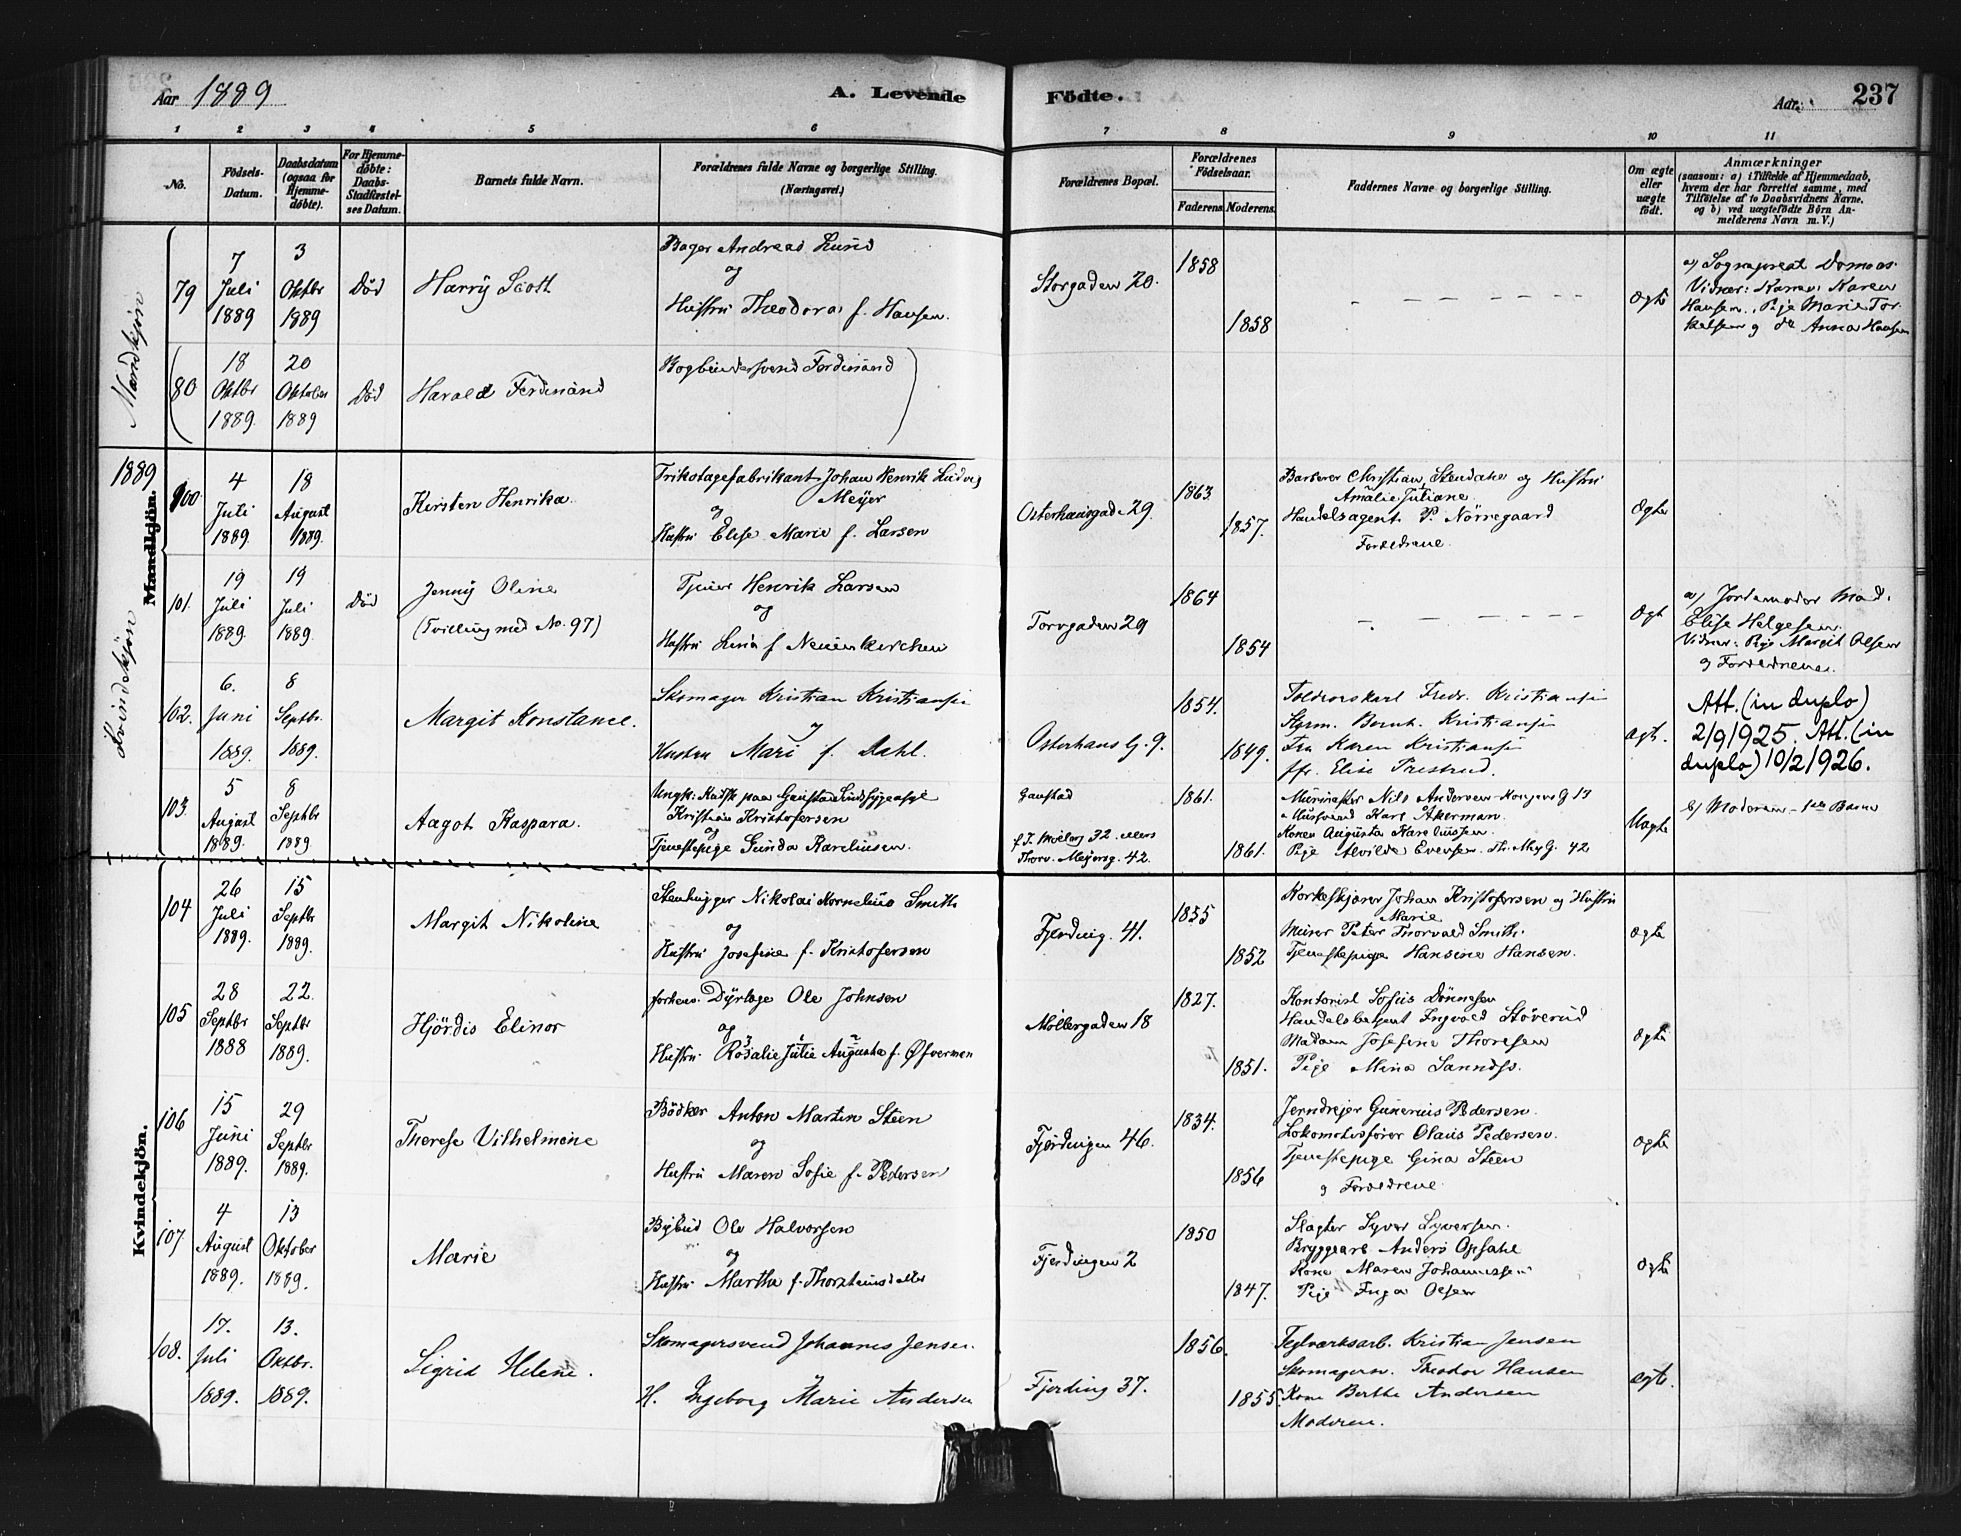 Aar 1889
A. Levende Födte.
Aar
237
1 2 3 4 5 6 7 8 9 10 11
No.
Födsels-Datum.
Daabsdatum (ogsaa for Hjemmedöbte).
For Hjemmedöbte: Daabs-Stadfæstelses Datum.
Barnets fulde Navn.
Forældrenes fulde Navne og borgerlige Stilling. (Næringsvei.)
Forældrenes Bopæl.
Forældrenes Födselsaar.
Faderens Moderens
Faddernes Navne og borgerlige Stilling.
Om ægte eller uægte födt.
Anmærkninger
(saasom: a) i Tilfælde af Hjemmedaab,
hvem der har forrettet samme, med
Tilföielse af to Daabsvidners Navne,
og b) ved uægtefödte Börn An-
melderens Navn m. V.)
Mandkjön
79
7 Juli 1889
3 Oktbr 1889
Död
Harry Scott
Bager Andreas Lund
og
Hustru Theodora f. Hansen.
Storgaden 20.
1858
1858
Ægte
a) Sogneprest
Vidner:
Hansen, Pige Marie Tor-
kelsen og Anna Hansen
80
18 Oktbr 1889.
20 Oktober 1889
Död
Harald Ferdinand
Bogbindersvend Ferdinand
1889
Mandkjön.
Kvindekjön
100
4 Juli 1889.
18 August 1889.
Kirsten Henrika.
Trikotagefabrikant Johan Henrik Ludvig
Meyer
og
Hustru Elise Marie f. Larsen
Osterhausgade 29.
1863
1857.
Barberer Christian Stendahl og Hustru
Amalie Juliane.
Handelsagent P. Nörregaard
Forældrene.
Ægte
101.
19 Juli 1889.
19 Juli 1889.
Död
Jenny Oline
(Tvilling med No. 97)
Tjener Henrik Larsen
og
Hustru Lina f. Neuenkirchen
Torvgaden 29
1864
1854
Ægt
a) Jordemoder Mad.
Elise Helgesen.
Vidner: Pige Margit Olsen
og Forældrene.
102.
6. Juni 1889.
8 Septbr. 1889.
Margit Konstance.
Skomager Kristian Kristiansen
og
Hustru Mari f. Dahl.
Osterhaus G. 9.
1854.
1849.
Toldroerskarl Fredr. Kristiansen
Bernh. Kristiansen
Fru Karen Kristiansen
Elise Trestrud.
ægt.
Att. (in duplo)
2/9 1925. Att. (in
duplo) 10/2 1926.
103.
5 August 1889.
8 Septbr 1889.
Aagot Kaspara.
Ungk. Kudsk paa Gaustad Sindsygeasyl
Kristian Kristofersen
og
Tjenestepige Gunda Kareliusen.
Gaustad
32 ellers
Thorv. Meyersg. 42.
1861.
1861.
Murmester Nils Andersen G 13
Karl Åkerman.
Konen Augusta Kareliussen.
Pige Alvilde Evensen. Th. Mey G. 42
Uægte
b) Moderen - 1ste Barn
Kvindekjön.
104
26 Juli 1889.
15 Septbr 1889.
Margit Nikoline
Stenhugger Nikolai Kornelius Smith
og
Hustru Josefine f. Kristofersen
Fjerding. 41.
1855
1852
Korkeskjærer Johan Kristofersen og Hustru
Marie
Murer Peter Thorvald Smith.
Tjenestepige Hansine Hansen.
Ægte
105
28 Septbr 1888
22. Septbr 1889.
Hjördis Elinor
forhenv. Dyrlæge Ole Johnsen
og
Hustru Rosalie Julie Augusta f. Öfverman
Möllergaden 18
1827.
1851.
Kontorist Sofus Dönnesen
Handelsbetjent Ingvald Stöverud
Madam Josefine Thoresen
Pige Mina Sannæss.
Ægte
106
15 Juni 1889.
29 Septbr 1889.
Therese Vilhelmine
Bödker Anton Martin Steen
og
Hustru Maren Sofie f. Pedersen
Fjerdingen 46.
1834.
1856
Jerndreier Gunerius Pedersen.
Lokomotivförer Olaus Pedersen.
Tjenestepige Gina Steen
og Forældrene.
Ægte
107.
4 August 1889.
13 Oktober 1889.
Marie
Bybud Ole Halvorsen
og
Hustru Marthe f. Thorsteinsdatter
Fjerdingen 2
1850
1847.
Slagter Syver Syversen.
Bryggearb. Anders Opsahl
Kone Maren Johannessen
Pige Inga Olsen
Ægte
108.
17. Juli 1889.
13. Oktbr. 1889.
Sigrid Helene.
Skomagersvend Johannes Jensen.
og
H. Ingeborg Marie Andersen
Fjerding 37.
1856.
1855.
Teglværksarb. Kristian Jensen
Skomagersv. Theodor Hansen
Kone Berthe Andersen
Moderen.
ægte.